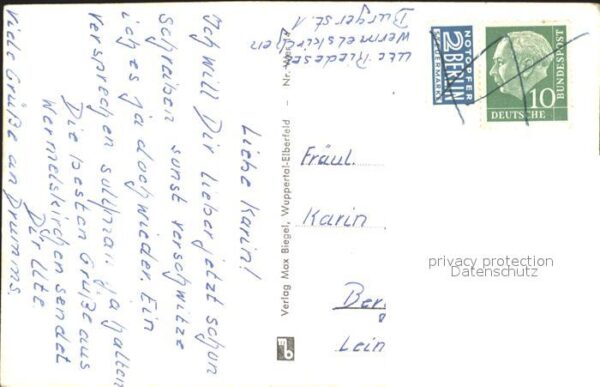 Ute Riedese
Wermelskirchen
Burgerst. 1
NOTOPFER
2 BERLIN
STEUERMARKE
DEUTSCHE
10
BUNDESPOST
Liebe Karin!
Ich will Dir lieber jetzt schon
schreiben sonst verschwitze
ich es ja doch wieder. Ein
Versprechen soll man ja halten
Die besten Grüße aus
Wermelskirchen sendet
Dir Ute.
Viel Grüße an Drumms.
Verlag Max Biegel, Wuppertal-Elberfeld - Nr.
mb
Fräul.
Karin
Ber
Lein
privacy protection
Datenschutz